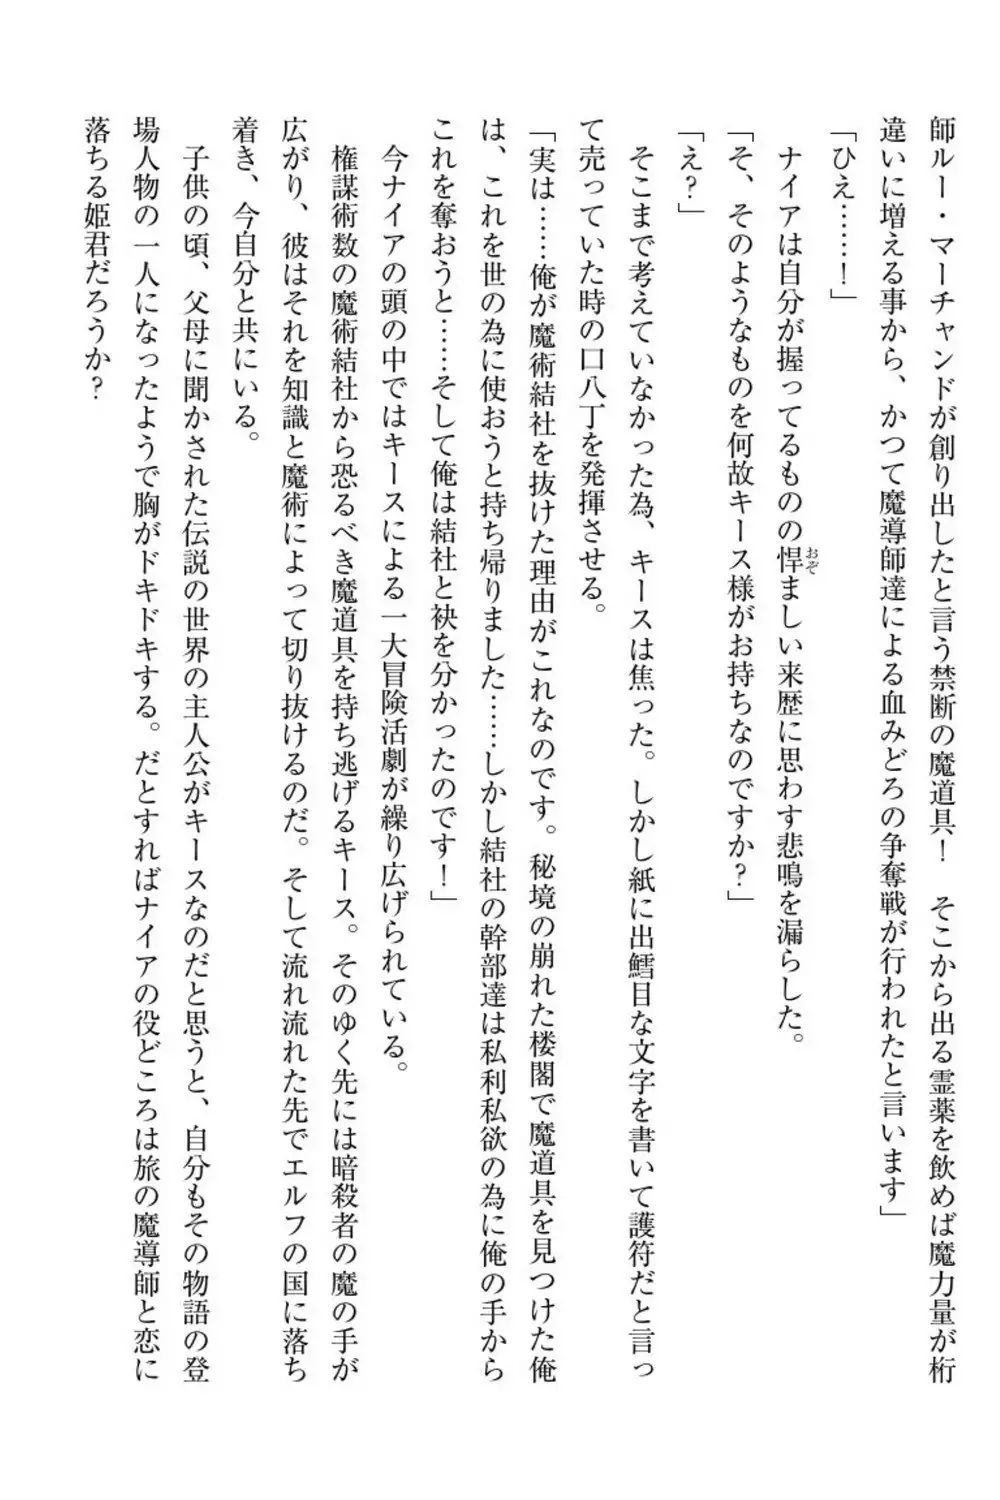 師ルー・マーチャンドが創り出したと言う禁断の魔道具！　そこから出る霊薬を飲めば魔力量が桁
違いに増える事から、かつて魔導師達による血みどろの争奪戦が行われたと言います」
「ひえ……！」
　ナイアは自分が握ってるものの悍ましい来歴に思わす悲鳴を漏らした。
おぞ
「そ、そのようなものを何故キース様がお持ちなのですか？」
「え？」
　そこまで考えていなかった為、キースは焦った。しかし紙に出鱈目な文字を書いて護符だと言っ
て売っていた時の口八丁を発揮させる。
「実は……俺が魔術結社を抜けた理由がこれなのです。秘境の崩れた楼閣で魔道具を見つけた俺
は、これを世の為に使おうと持ち帰りました……しかし結社の幹部達は私利私欲の為に俺の手から
これを奪おうと……そして俺は結社と袂を分かったのです！」
　今ナイアの頭の中ではキースによる一大冒険活劇が繰り広げられている。
　権謀術数の魔術結社から恐るべき魔道具を持ち逃げるキース。そのゆく先には暗殺者の魔の手が
広がり、彼はそれを知識と魔術によって切り抜けるのだ。そして流れ流れた先でエルフの国に落ち
着き、今自分と共にいる。
　子供の頃、父母に聞かされた伝説の世界の主人公がキースなのだと思うと、自分もその物語の登
場人物の一人になったようで胸がドキドキする。だとすればナイアの役どころは旅の魔導師と恋に
落ちる姫君だろうか？